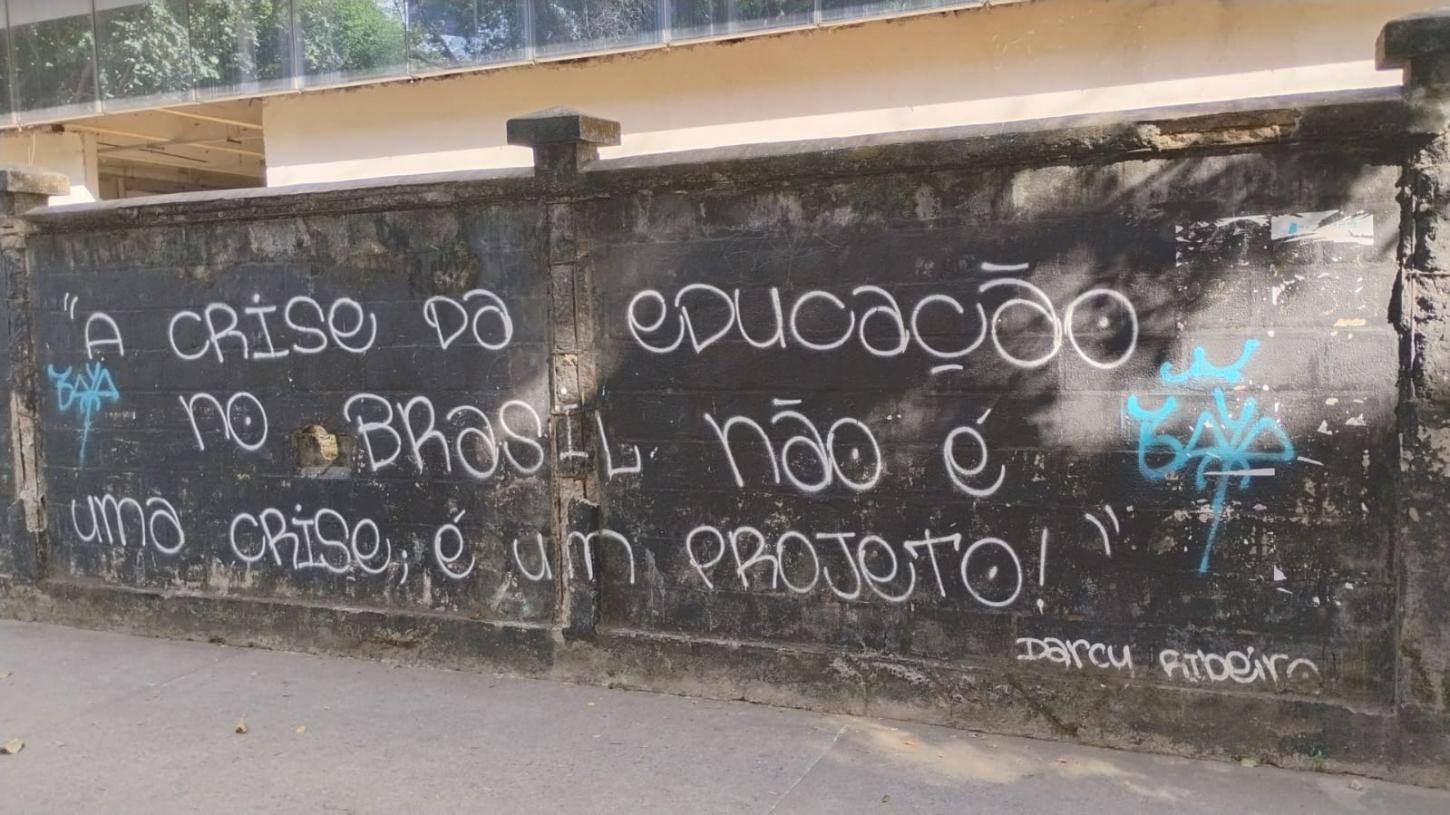 "A CRISE DA EDUCAÇÃO
NO BRASIL NÃO É
UMA CRISE; É UM PROJETO!"
DARCY RIBEIRO